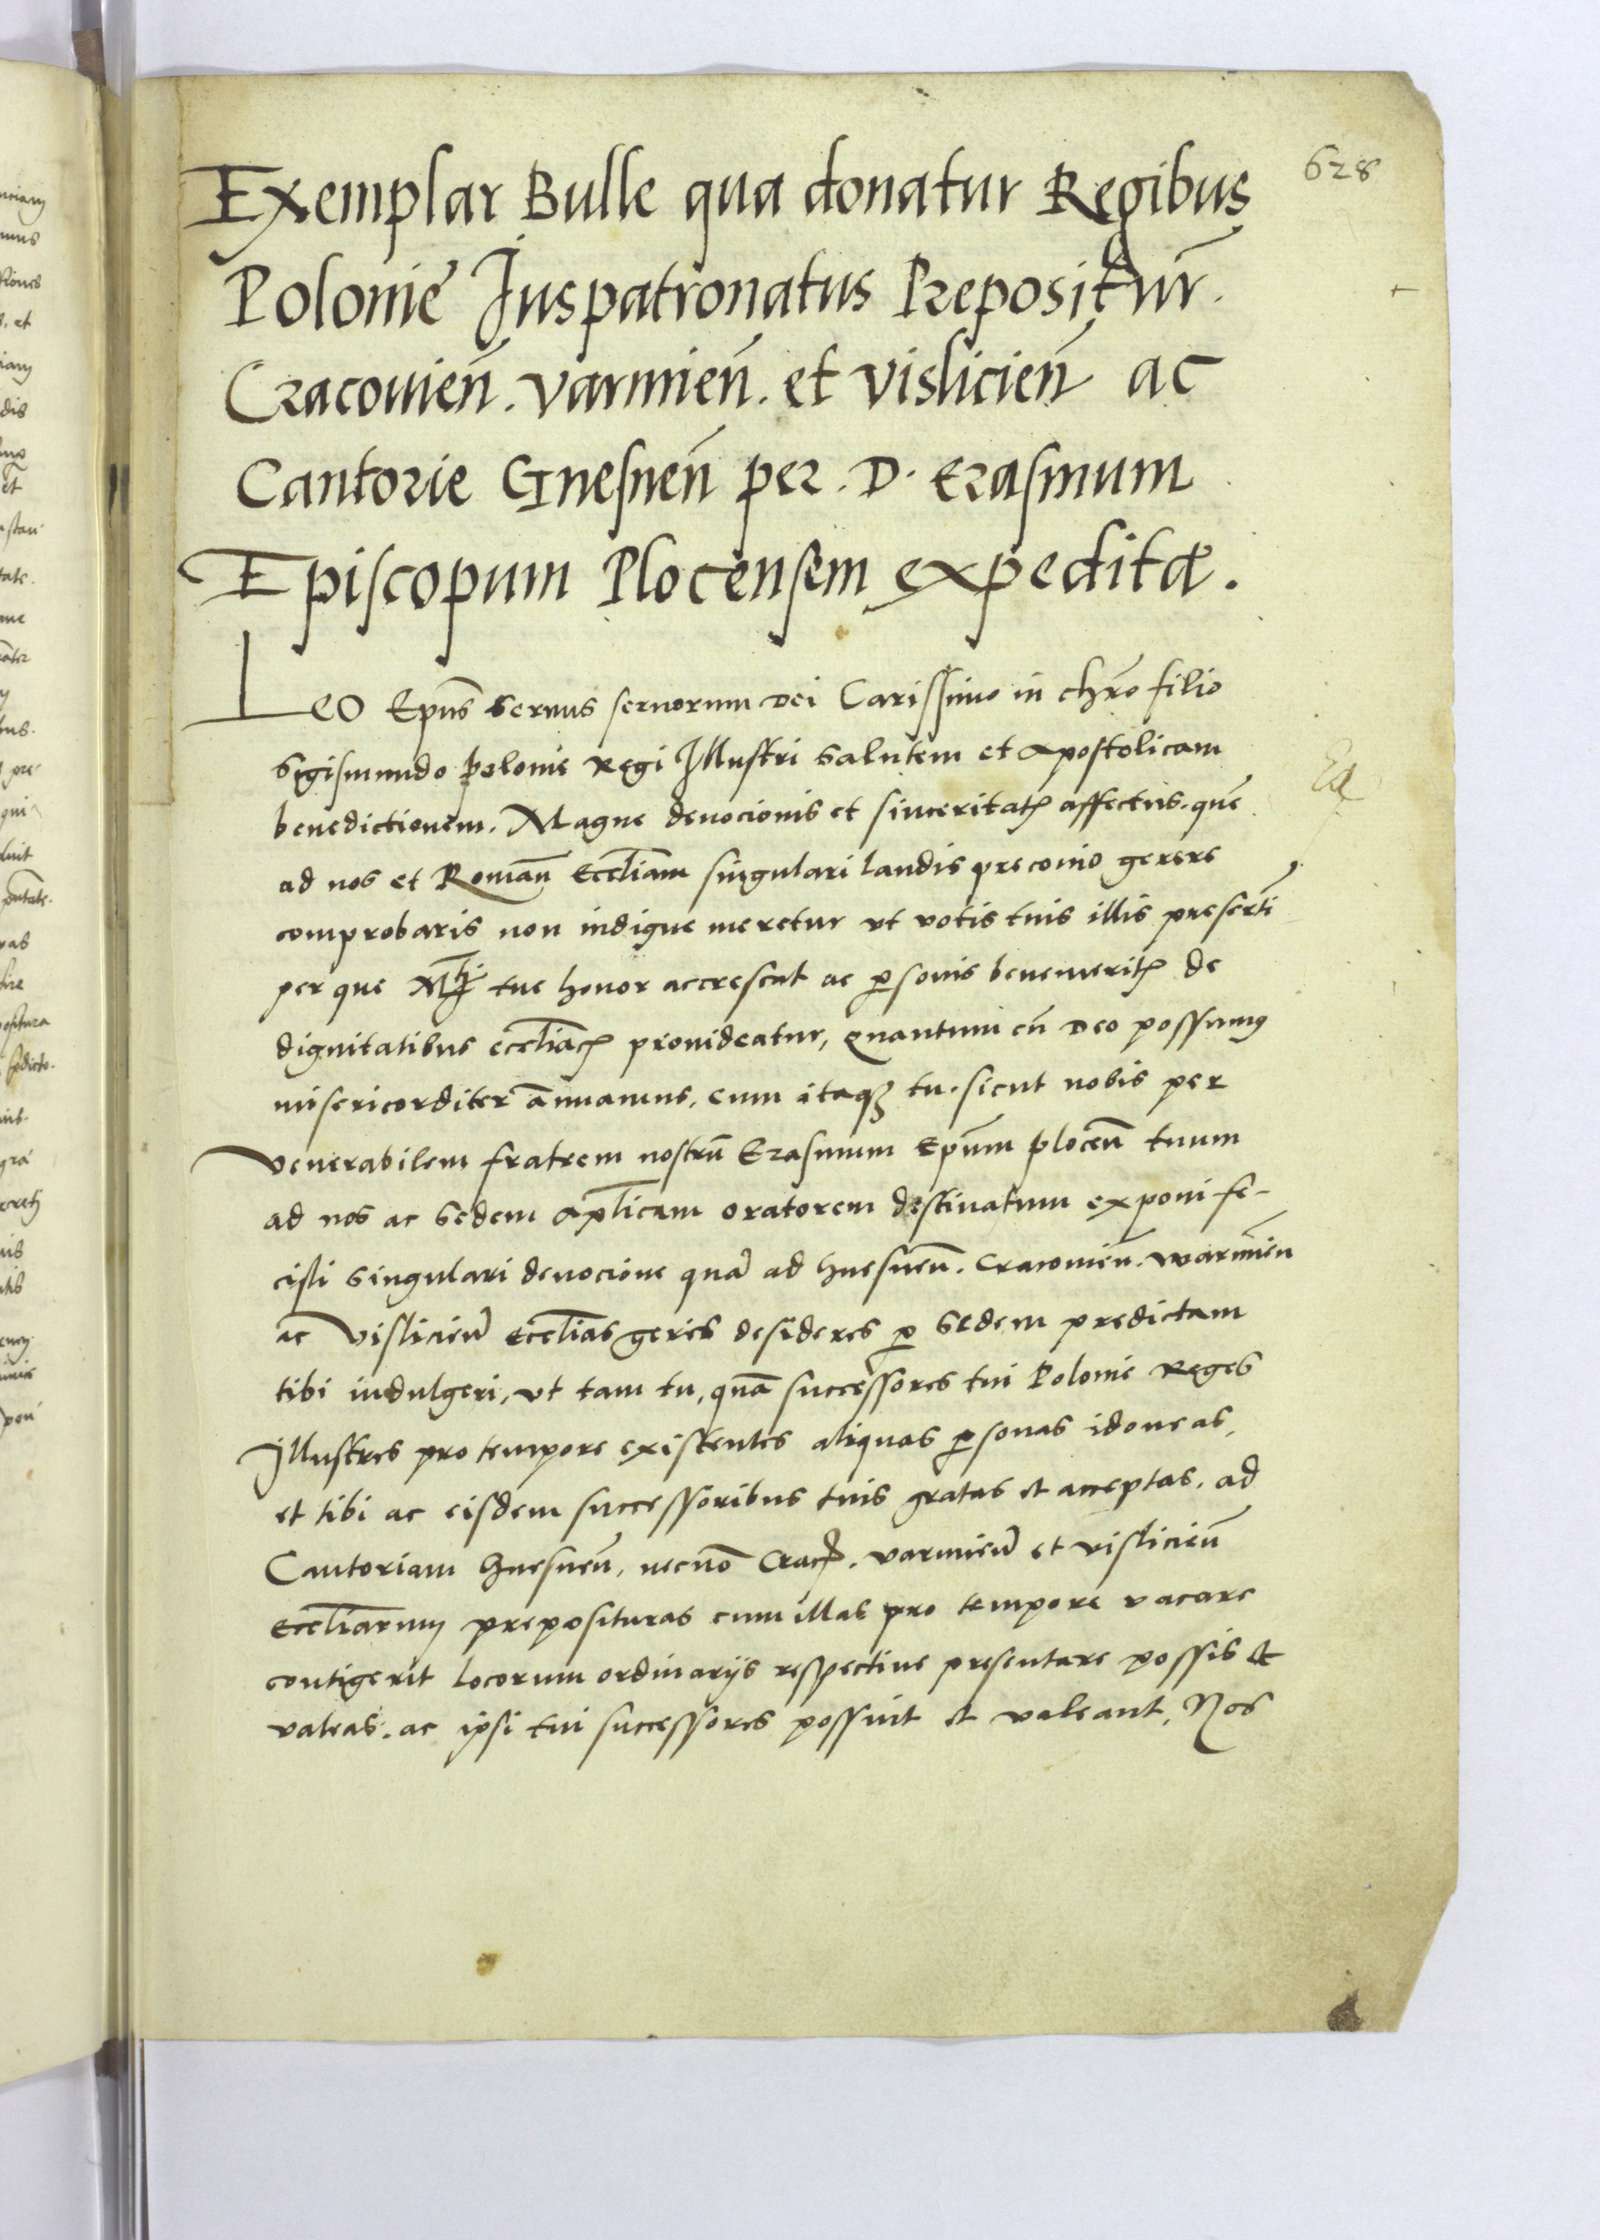 628
Exemplar Bulle qua donatur Regibus
Polonie Juspatronatus Prepositur̄.
Cracovien̄. varmien̄. et vislicien̄ ac
Cantorie Gnesnen̄ per. D. Erasmum
Episcopum Plocensem expeditæ.
Leo Ep̄us servus servorum Dei Carissimo in chr̄o filio
Sigismundo polonie Regi Illustri salutem et apostolicam
benedictionem. Magne devocionis et sinceritatꝭ affectus. quē
ad nos et Romān Eccl̄iam singulari laudis preconio gerere
comprobaris non indigne meretur vt votis tuis illis presertī
per que tue honor accrescat ac ꝑsonis benemeritꝭ de
dignitatibus eccl̄iacꝭ provideatur, quantum cū Deo possumꝰ
misericorditer annuamus. cum itaqꝫ tu. sicut nobis per
venerabilem fratrem nostrū Erasmum Ep̄um plocen̄ tuum
ad nos ac sedem ap̄licam oratorem destinatum exponi fe-
cisti singulari devocione quā ad Gnesnen̄. Cracovien̄. warmien̄
ac vislicien̄ eccl̄ias geris desideres ꝑ sedem predictam
tibi indulgeri, vt tam tu, quā successores tui Polonie Reges
Illustres pro tempore existentes aliquas ꝑsonas idoneas,
et tibi ac eisdem successoribus tuis gratas et acceptas. ad
Cantoriam Gnesnen̄, necnō Cracꝭ. varmien̄ et vislicien̄
eccl̄iarum preposituras cum illas pro tempore vacare
contigerit locorum ordinarijs respective presentare possis et
valeas. ac ipsi tui successores possint et valeant. Nos